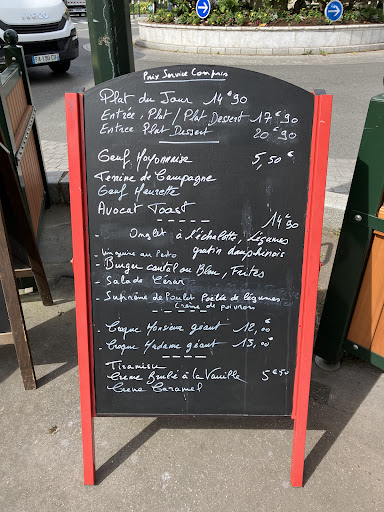 IVECO
Prix Service Compris
Plat du Jour 14€90
Entrée, Plat / Plat Dessert 17€90
Entrée Plat Dessert 20€90
Oeuf Mayonnaise 5,50€
Terrine de Campagne
Oeuf Meurette
Avocat Toast
14€90
- Onglet à l'échalotte, Légumes
- Linguine au Pesto gratin dauphinois
- Burger cantal ou Bleu, Frites
- Salade César
- Suprême de Poulet Poêlée de légumes
Crème de poivrons
- Croque Monsieur géant - 12,€00
- Croque Madame géant - 13,€00
Tiramisu
Crème Brulé à la Vanille 5€50
Crème Caramel